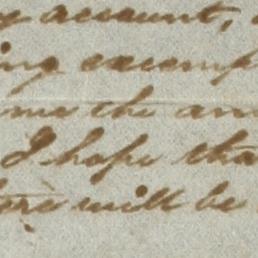 account,
ing exemp
me the am
I hope tha
will be